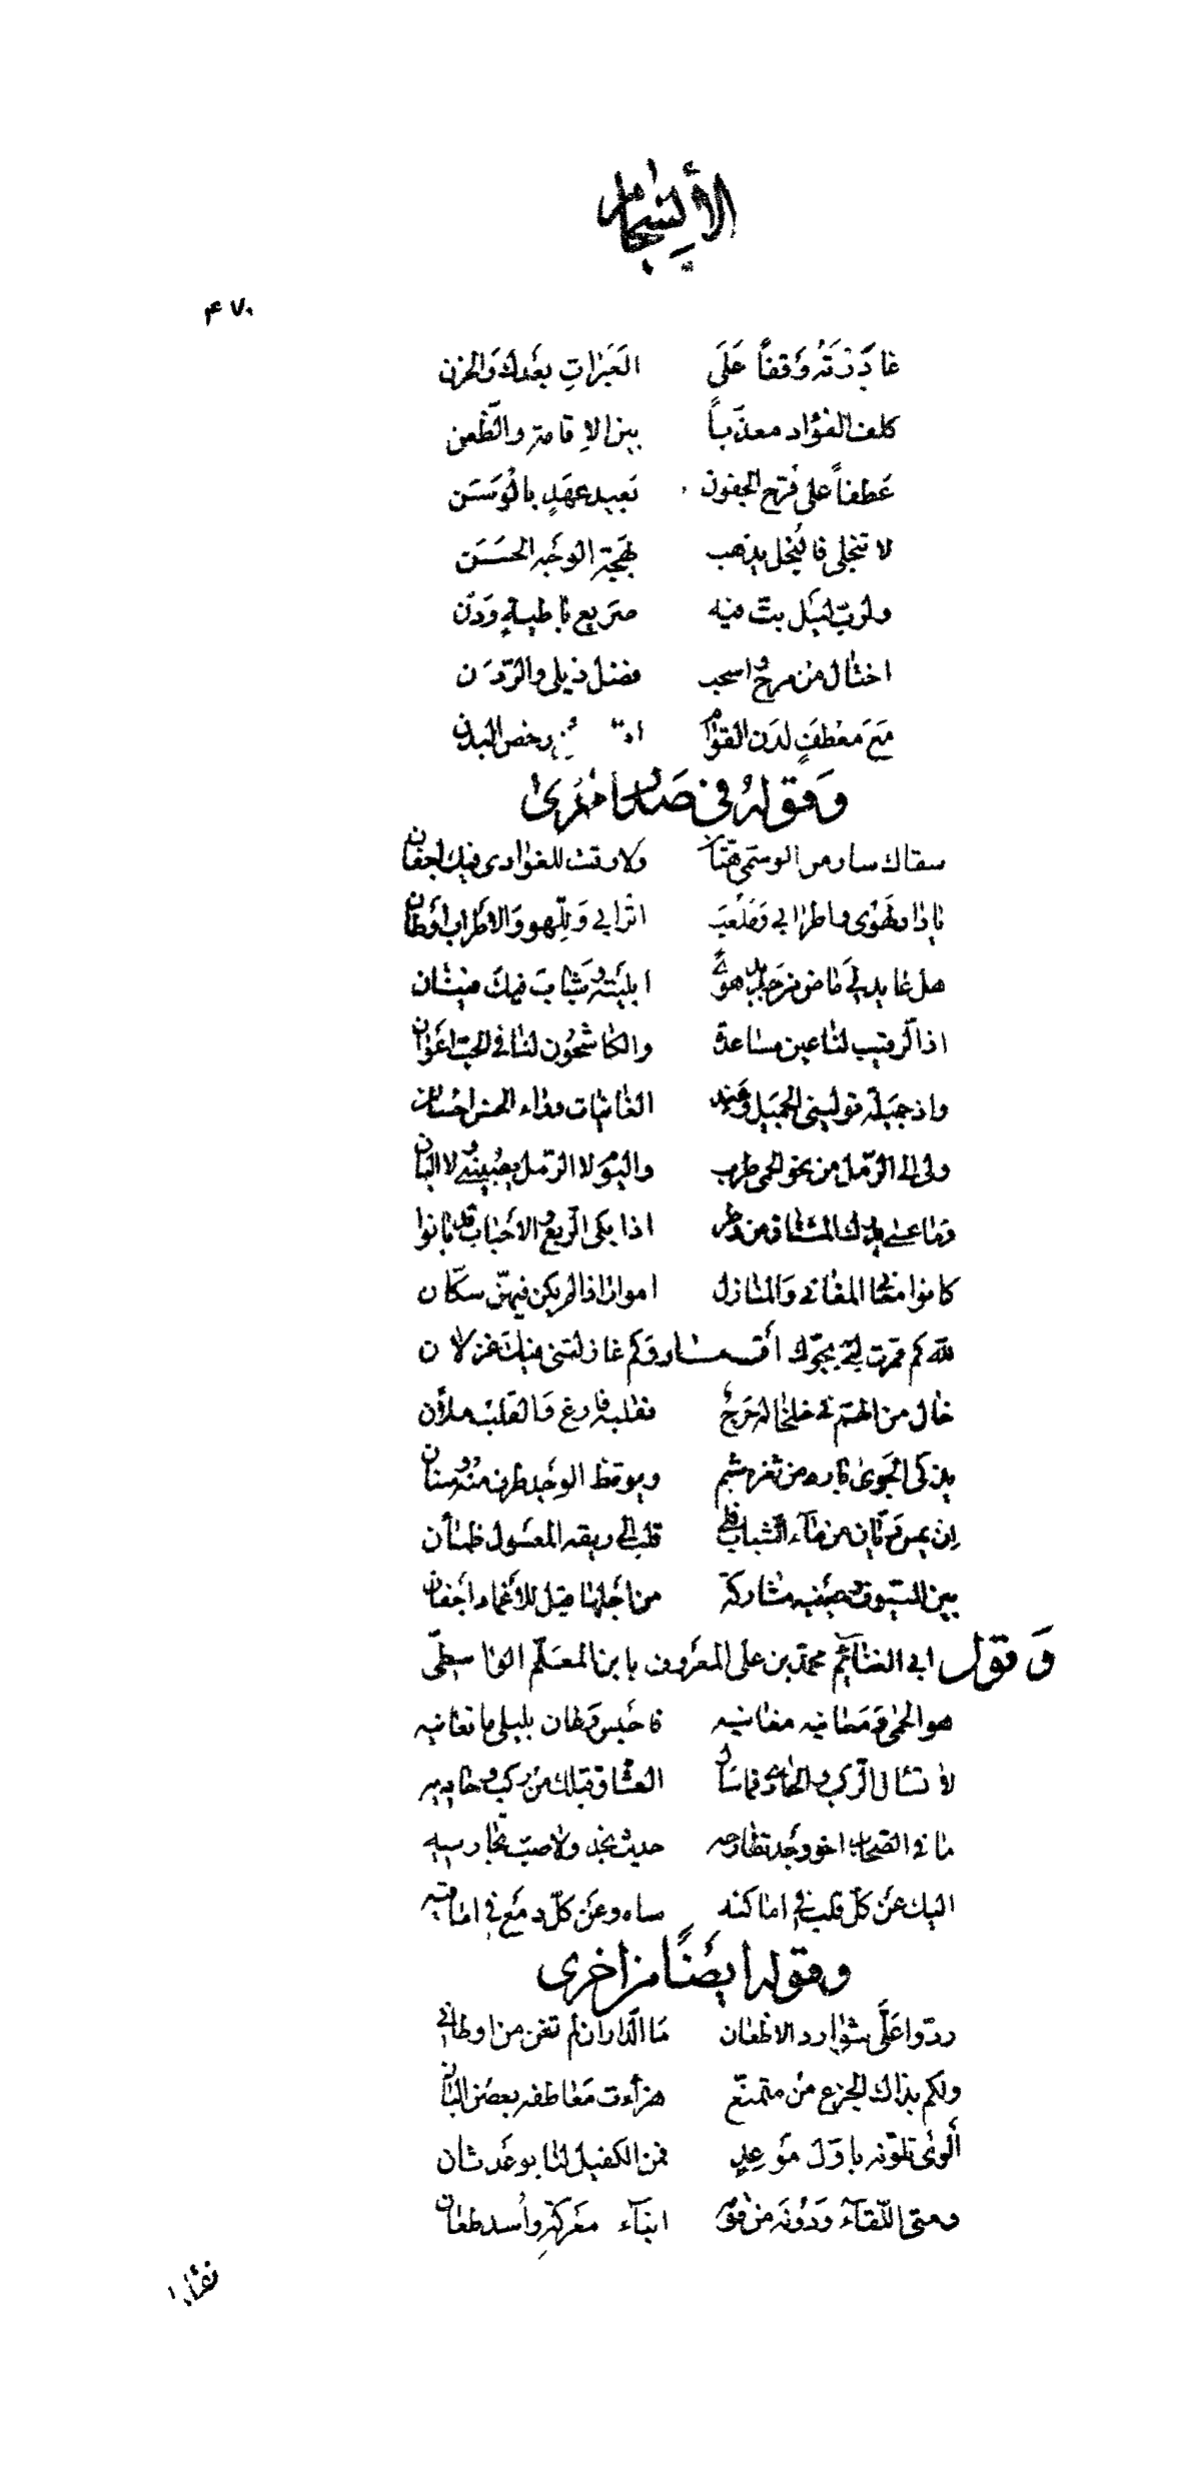 الأنسجام
۴۷۰
غادَرْتَهُ وَقفاً عَلَى العَبَرَاتِ بعْدَكَ وَالحزن
كلف الفؤاد معذّباً بين الاِقامة والظّعن
عَطفاً على قرح الجفون بَعيد عهَدٍ بالوَسَن
لا تبخلى فالبُخل يذهب بهجة الوجْه الحَسَن
ولربّ لَيْل بتّ فيه صَريع باطيةٍ وَدَن
اختال من مرح واسحب فضل ذيلى والرّدَن
مَعَ مَعْطفٍ لدَن القوام رخص البدن
وَقولهُ فى صَدر اخرى
سقاك سار من الوسمى هتّان ولا رقت للغوادى فيك اجفان
يا دار لهوى واطرابى وَملعَب اترابى وَللّهو وَالاطراب اوطان
هل عايد لى ماض من جديد هوىً ابليته وشَباب فيك فينان
اذ الرقيب لنا عين مساعدة والكاشحُون لنا فى الحبّ اعوَان
واذ جميلة توليني الجميل وعند الغانيات وراء الحسن احسان
ولى الى الرّمل من نحو الحمى طرب واليوَم لا الرّمل يصُبيني ولا البان
وَما عسى يدرك المشتاق من وطر اذا بكى الرّبع والاحْباب قد بانوا
كانوا معانى المغانى وَالمنازل اموات اذا لم يكن فيهنّ سكّان
للّه كم قمرت لبّى بجوّك أقمار وكم غازلتنى فيك غزلان
خال من الهمّ فى خلخاله حَرَج فقلبه فارغ وَالقلبُ ملآن
يذكى الجَوى بارد من ثغره شبم ويوقظ الوجْد طرف منهُ وسنان
اِن يمس رَيّان من مآء الشّباب فلى قلب الى ريقه المعسُول ظمأن
بين السّيوف وعينيه مشاركة من اجلها قيل للأغماد اجْفان
وَقول ابى الغنآئم محمّد بن على المعرُوف بابن المعَلّم الواسطىّ
هو الحمى وَمَغانيه مغانيه فاحبس وَعان بليلى ما تعانيه
لا تسأل الركب والحادى فما سأل العشّاق قبلك عن ركب وحاديه
ما فى الصّحاب اخو وَجْد تطارحه حديث نجد ولا صبّ تجاريه
اليك عَن كلّ قلب فى اماكنه ساه وعَن كلّ دمْع فى اماقيه
وقوله ايضًا من اخرى
ردّوا عَلَىّ شوَارد الاظعَان مَا الدّار ان لم تغن من اوطانى
ولكم بذاك الجزع من متمنّع هزأت مَعَاطفه بغصن البان
ألوىٰ تلوّنه باوّلَ مَوعِدٍ فمن الكفيل لنا بوعْد ثان
ومتى اللّقآء وَدُونَه من قوْمه ابنآء معَركةٍ واُسد طعان